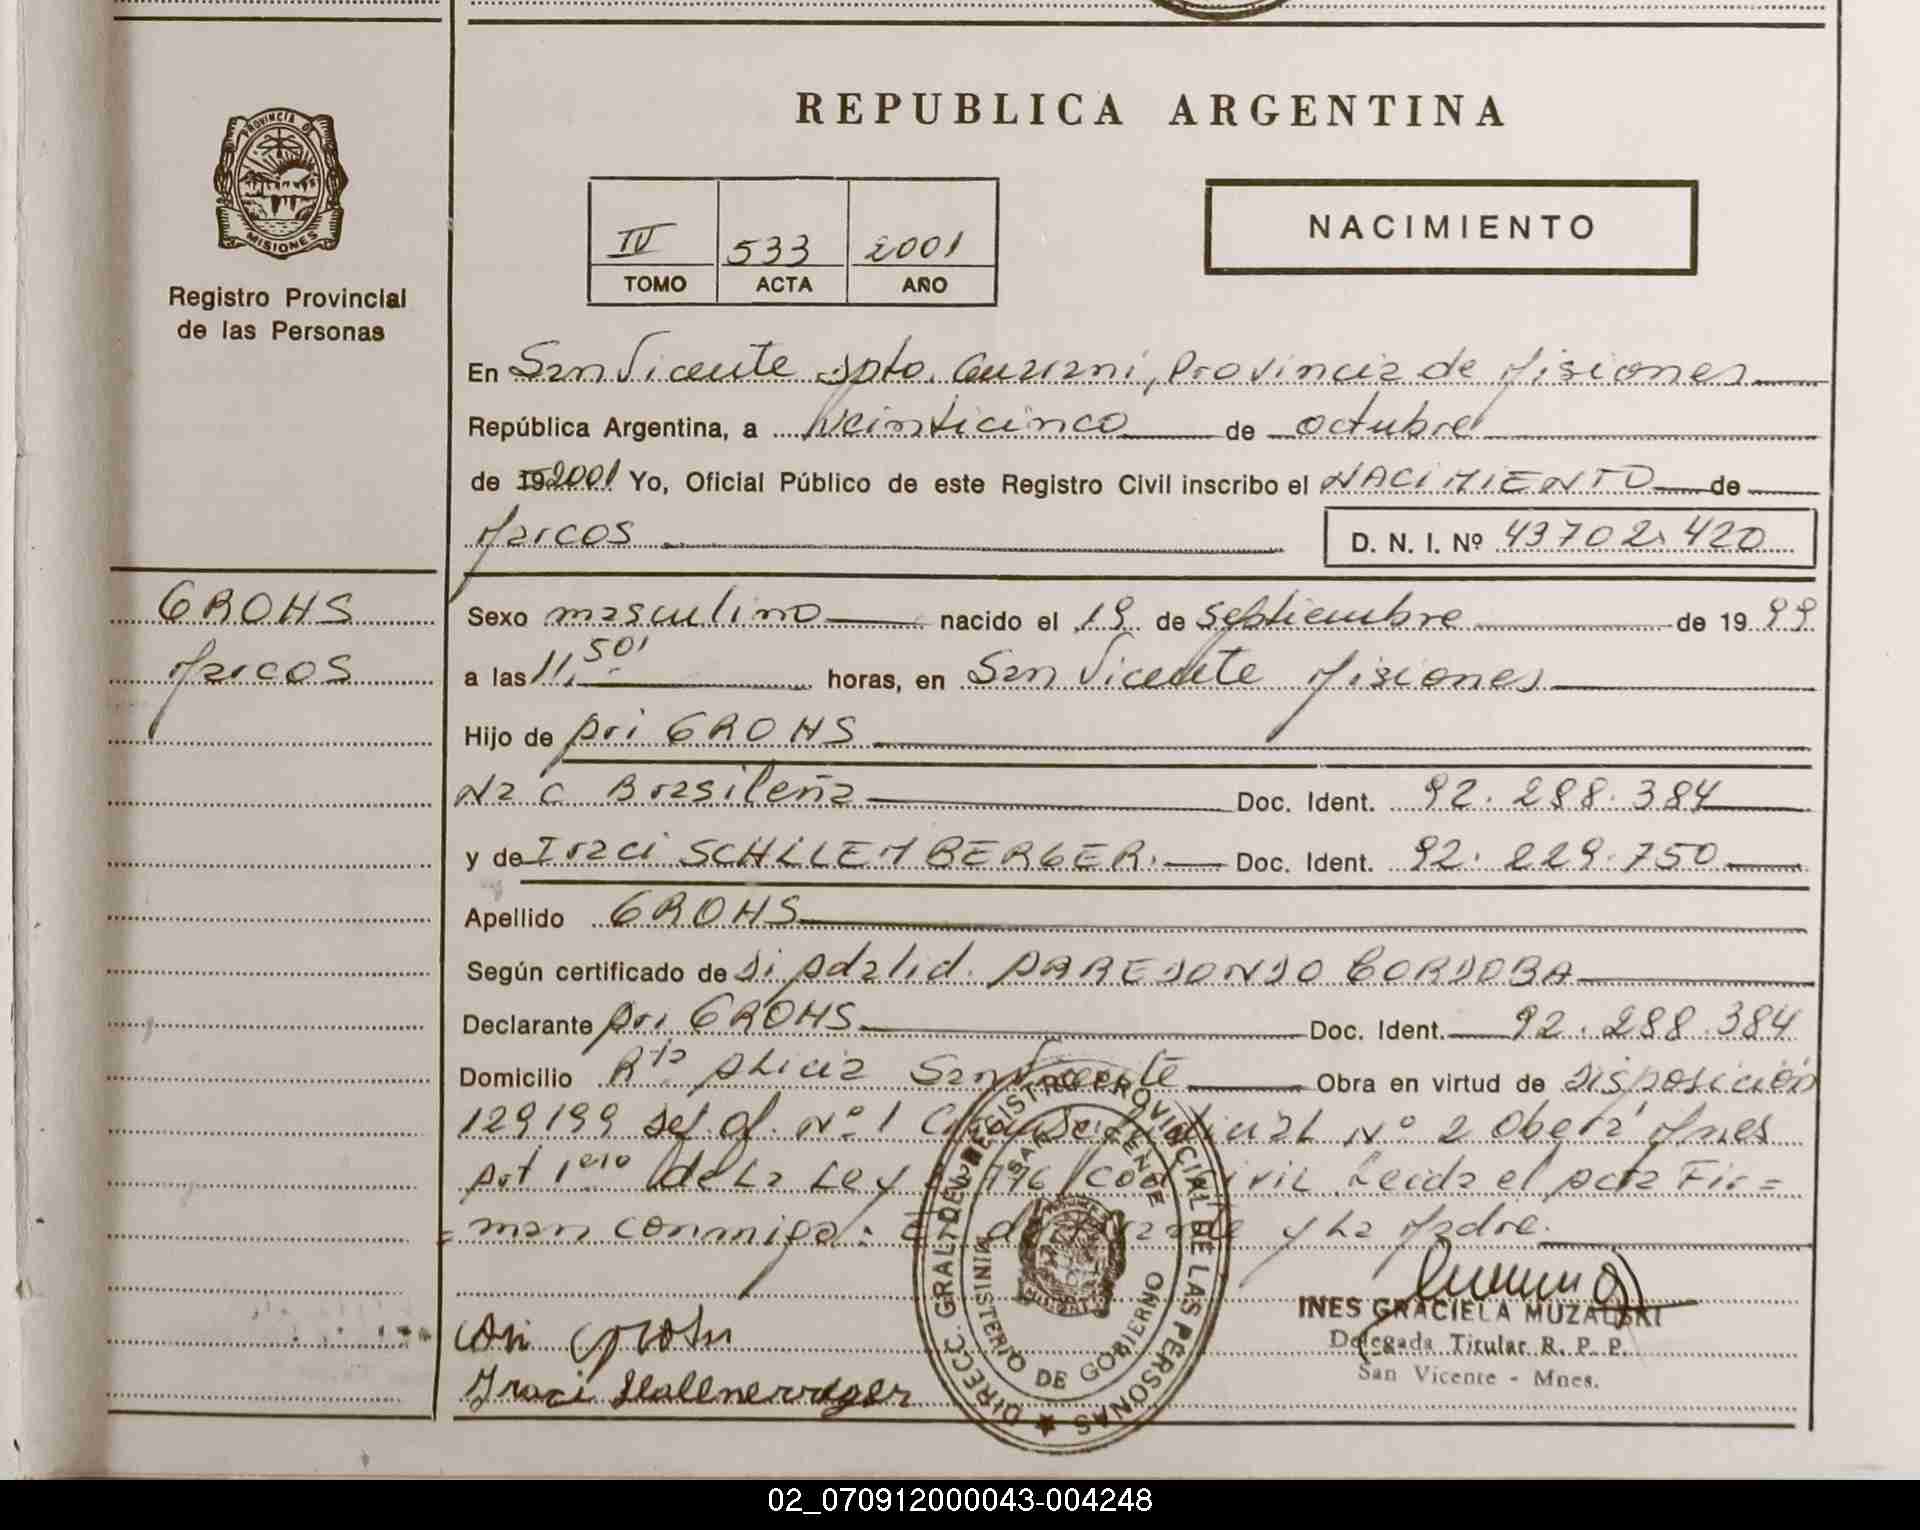 REPUBLICA ARGENTINA
PROVINCIA DE
MISIONES
Registro Provincial
de las Personas
IV 533 2001
TOMO ACTA AÑO
NACIMIENTO
En San Vicente Dpto. Guarani, Provincia de Misiones
República Argentina, a Veinticinco de octubre
de 19 2001 Yo, Oficial Público de este Registro Civil inscribo el NACIMIENTO de
Marcos D. N. I. Nº 43702.420
GROHS
Marcos
Sexo masculino nacido el 19 de Septiembre de 19 99
a las 11,50' horas, en San Vicente Misiones
Hijo de Ari GROHS
Nac Brasileña Doc. Ident. 92.288.384
y de Iraci SCHILEMBERGER. Doc. Ident. 92.229.750
Apellido GROHS
Según certificado de Adalid. AAREDONDO CORDOBA
Declarante Ari GROHS Doc. Ident. 92.288.384
Domicilio Rta Alicia San Vicente Obra en virtud de Disposición
129/99 Def. Of. Nº 1 Nº 2 Oberá Mnes
Art 1ero de La Ley Civil. Leida el Acta Fir=
=man conmigo: el y La Madre.
Ari Grohs
Iraci
INES GRACIELA MUZALSKI
Delegada Titular R. P. P.
San Vicente - Mnes.
DIRECC. GRAL. DEL REGISTRO PROVINCIAL DE LAS PERSONAS
MINISTERIO DE GOBIERNO
SAN VICENTE
02_070912000043-004248